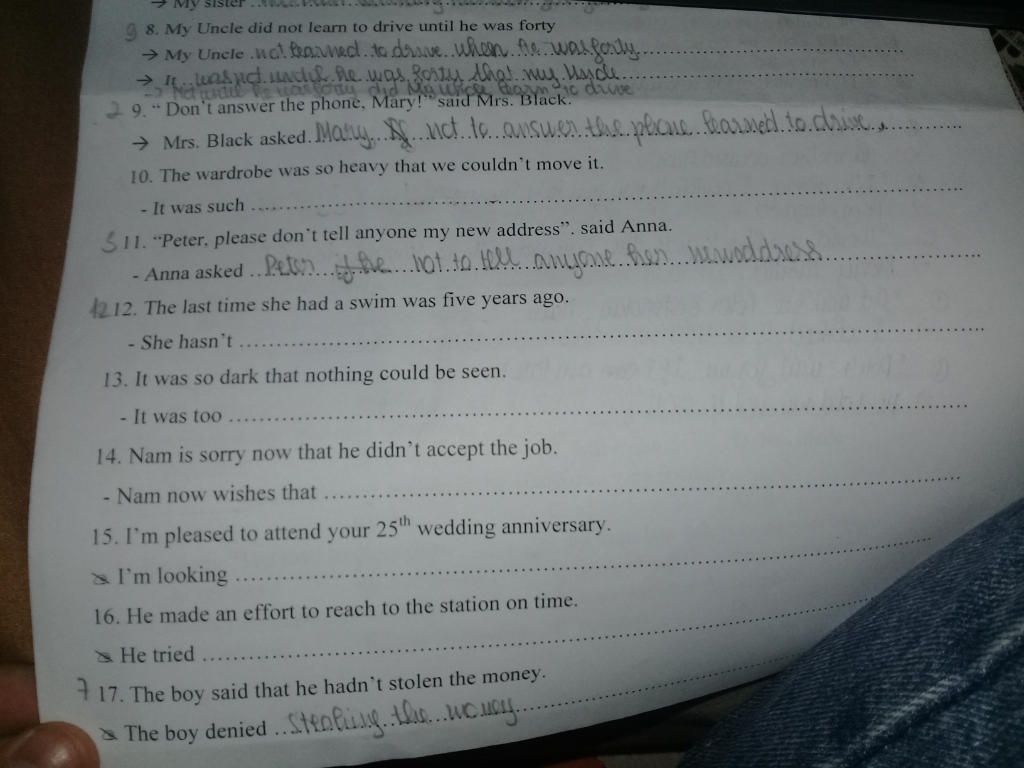 → My sister
8. My Uncle did not learn to drive until he was forty
→ My Uncle not learned to drive when he was forty
→ It was not until he was forty that my Uncle
→ Not until he was forty did My Uncle learn to drive
2 9. " Don't answer the phone, Mary!" said Mrs. Black.
→ Mrs. Black asked Mary not to answer the phone learned to drive.
10. The wardrobe was so heavy that we couldn't move it.
- It was such
11. "Peter, please don't tell anyone my new address". said Anna.
- Anna asked Peter not to tell anyone her newaddress
12. The last time she had a swim was five years ago.
- She hasn't
13. It was so dark that nothing could be seen.
- It was too
14. Nam is sorry now that he didn't accept the job.
- Nam now wishes that
15. I'm pleased to attend your 25th wedding anniversary.
I'm looking
16. He made an effort to reach to the station on time.
He tried
7 17. The boy said that he hadn't stolen the money.
The boy denied stealing the money